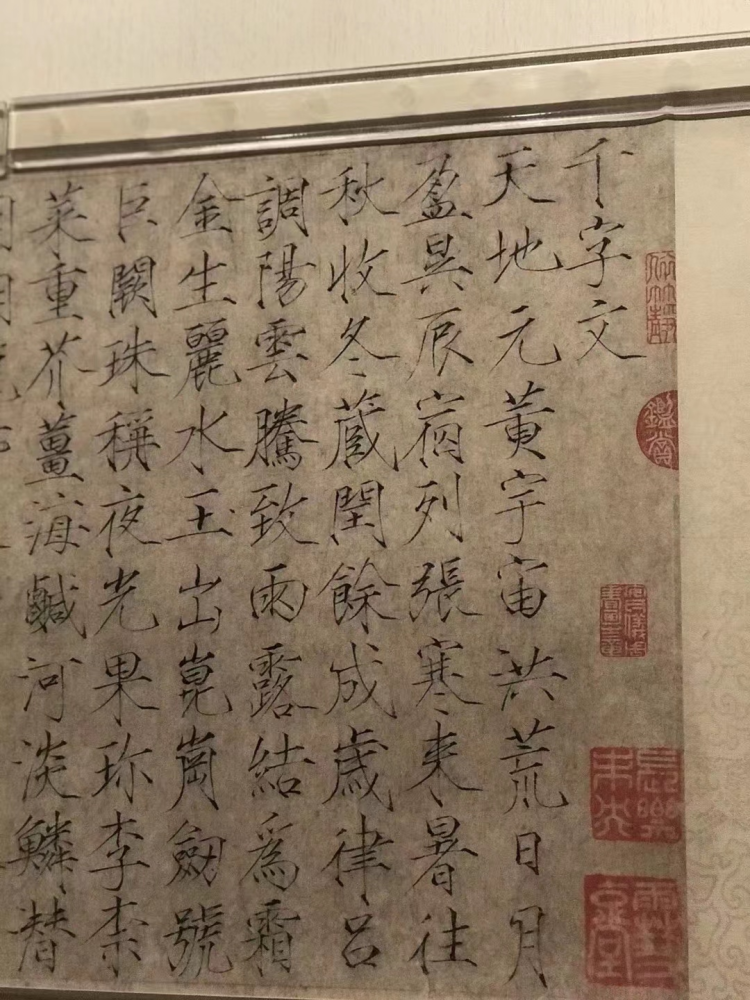 千字文
天地元黄宇宙洪荒日月
盈昃辰宿列張寒来暑往
秋收冬蔵閏餘成歳律吕
調陽雲騰致雨露結爲霜
金生麗水玉出崑崗劒號
巨闕珠稱夜光果珎李柰
菜重芥薑海鹹河淡鱗潜
鑑賞